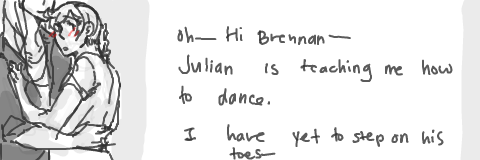 oh— Hi Brennan—
Julian is teaching me how
to dance.
I have yet to step on his
toes—